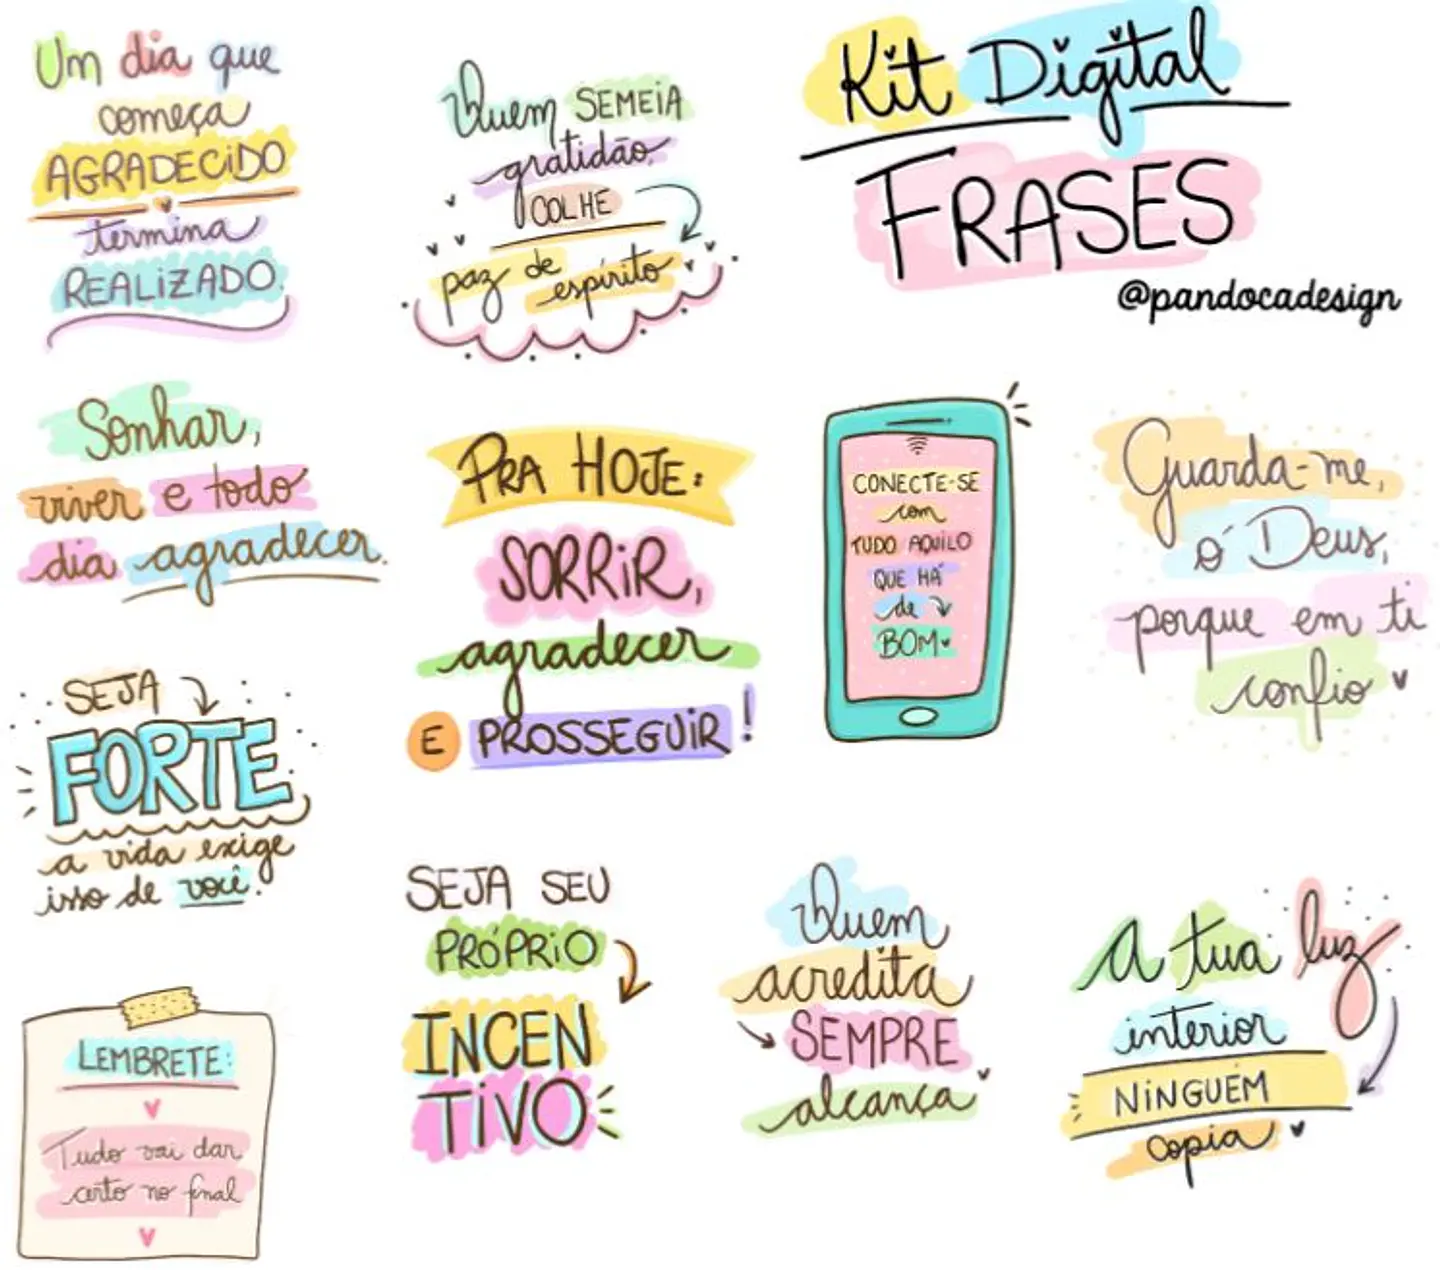 Um dia que
começa
AGRADECIDO
termina
REALIZADO.
Quem SEMEIA
gratidão,
COLHE
paz de
espírito
Kit Digital
FRASES
@pandocadesign
Sonhar,
viver e todo
dia agradecer.
PRA HOJE:
SORRIR,
agradecer
E PROSSEGUIR!
CONECTE-SE
com
TUDO AQUILO
QUE HÁ
de
BOM
Guarda-me,
ó Deus,
porque em ti
confio
SEJA
FORTE
a vida exige
isso de você.
SEJA SEU
PRÓPRIO
INCEN
TIVO
Quem
acredita
SEMPRE
alcança
A tua luz
interior
NINGUÉM
copia
LEMBRETE:
Tudo vai dar
certo no final